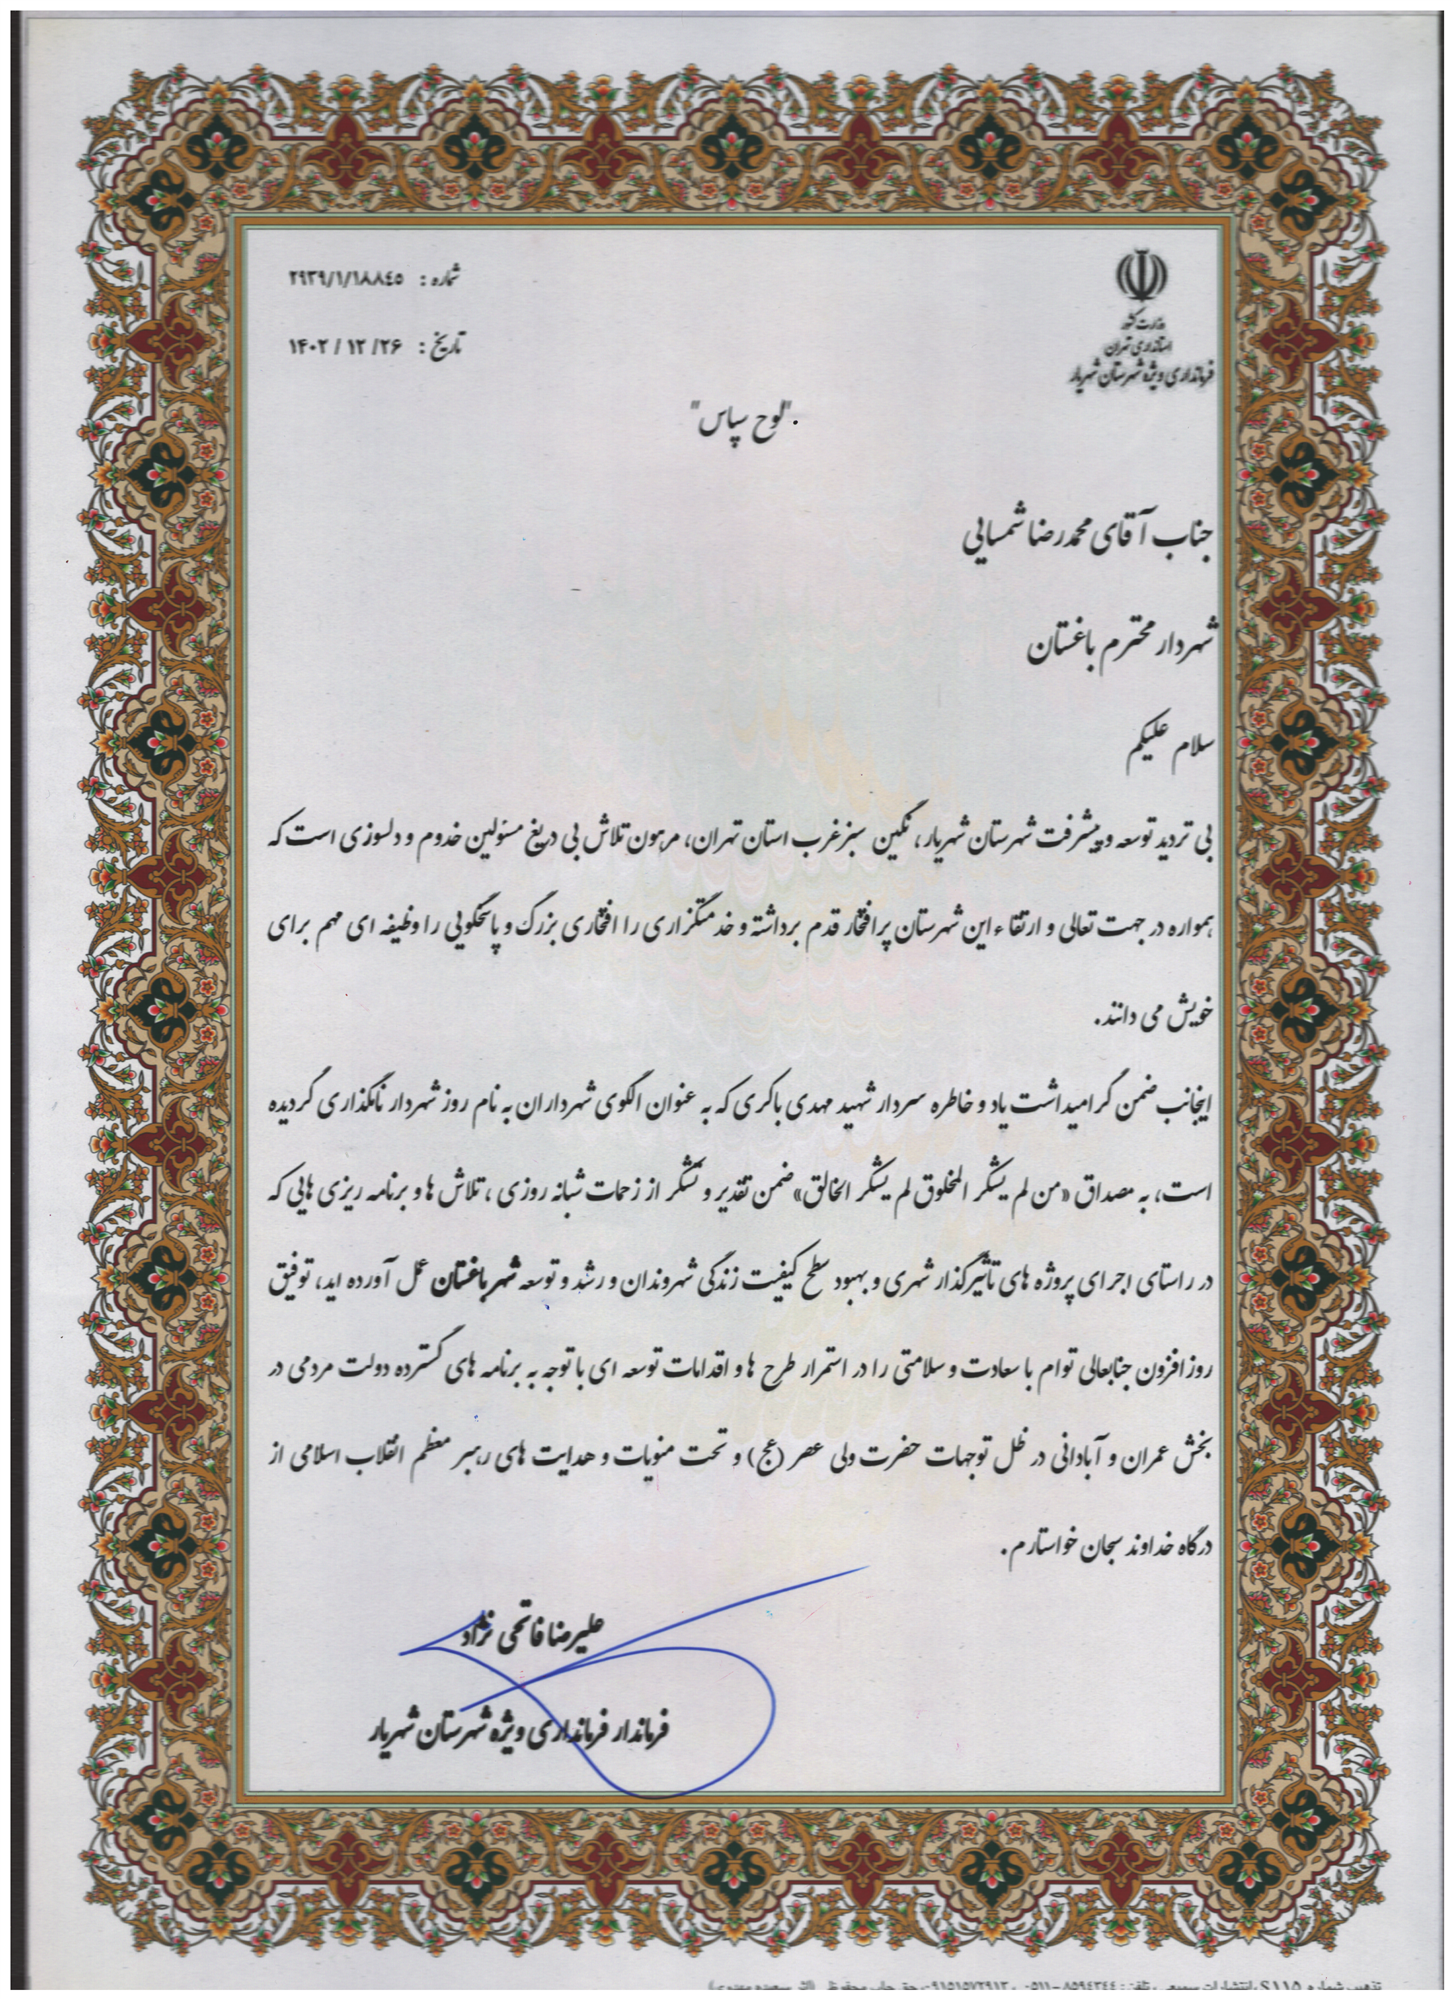 وزارت کشور
استانداری تهران
فرمانداری ویژه شهرستان شهریار
شماره : ۲۹۳۹/۱/۱۸۸٤٥
تاریخ : ۱۴۰۲ / ۱۲ /۲۶
"لوح سپاس"
جناب آقای محمدرضا شمسایی
شهردار محترم باغستان
سلام علیکم
بی تردید توسعه و پیشرفت شهرستان شهریار، نگین سبز غرب استان تهران، مرهون تلاش بی دریغ مسئولین خدوم و دلسوزی است که
همواره در جهت تعالی و ارتقاء این شهرستان پرافتخار قدم برداشته و خدمتگزاری را افتخاری بزرگ و پاسخگویی را وظیفه ای مهم برای
خویش می دانند.
اینجانب ضمن گرامیداشت یاد و خاطره سردار شهید مهدی باکری که به عنوان الگوی شهرداران به نام روز شهردار نامگذاری گردیده
است، به مصداق «من لم یشکر المخلوق لم یشکر الخالق» ضمن تقدیر و تشکر از زحمات شبانه روزی ، تلاش ها و برنامه ریزی هایی که
در راستای اجرای پروژه های تأثیرگذار شهری و بهبود سطح کیفیت زندگی شهروندان و رشد و توسعه شهر باغستان عمل آورده اید، توفیق
روزافزون جنابعالی توام با سعادت و سلامتی را در استمرار طرح ها و اقدامات توسعه ای با توجه به برنامه های گسترده دولت مردمی در
بخش عمران و آبادانی در ظل توجهات حضرت ولی عصر (عج) و تحت منویات و هدایت های رهبر معظم انقلاب اسلامی از
درگاه خداوند سبحان خواستارم.
علیرضا فاتحی نژاد
فرماندار فرمانداری ویژه شهرستان شهریار